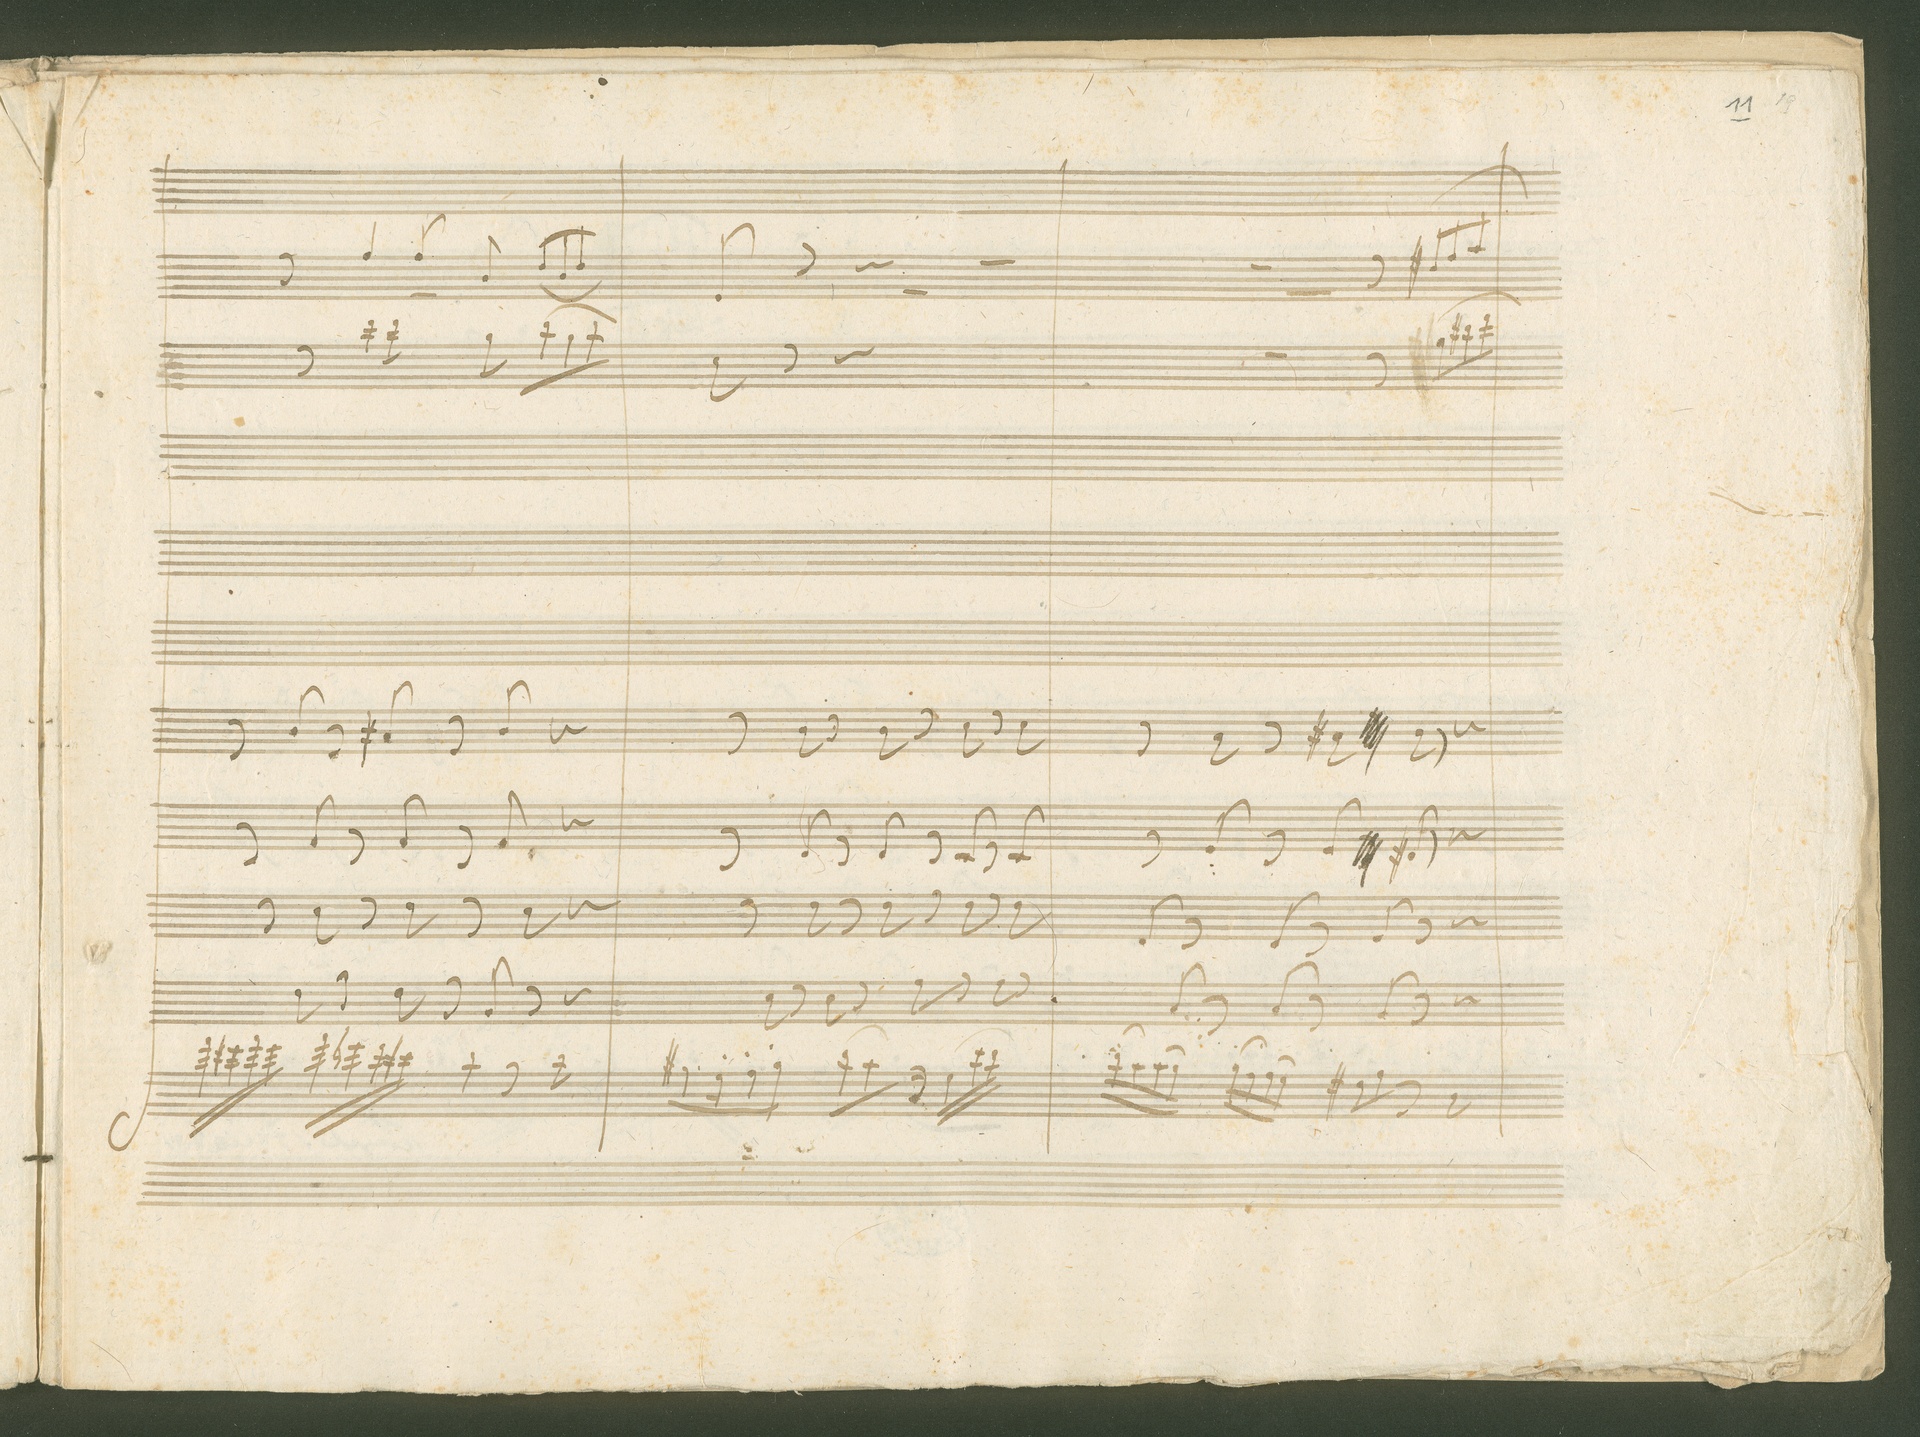 11 19